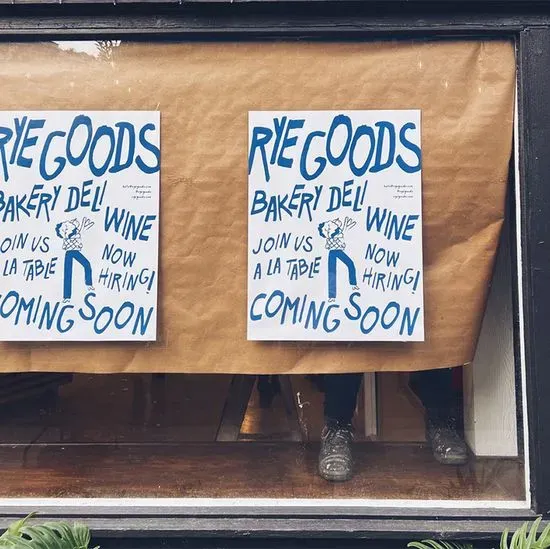 RYE GOODS
BAKERY DELI
WINE
JOIN US
A LA TABLE
NOW
HIRING!
COMING SOON
RYE GOODS
BAKERY DELI
WINE
JOIN US
A LA TABLE
NOW
HIRING!
COMING SOON